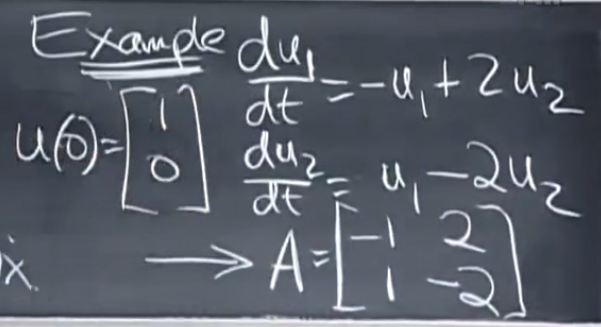 Example du₁/dt = -u₁ + 2u₂
u(0) = [1 0] du₂/dt = u₁ - 2u₂
ix. → A = [-1 2
1 -2]